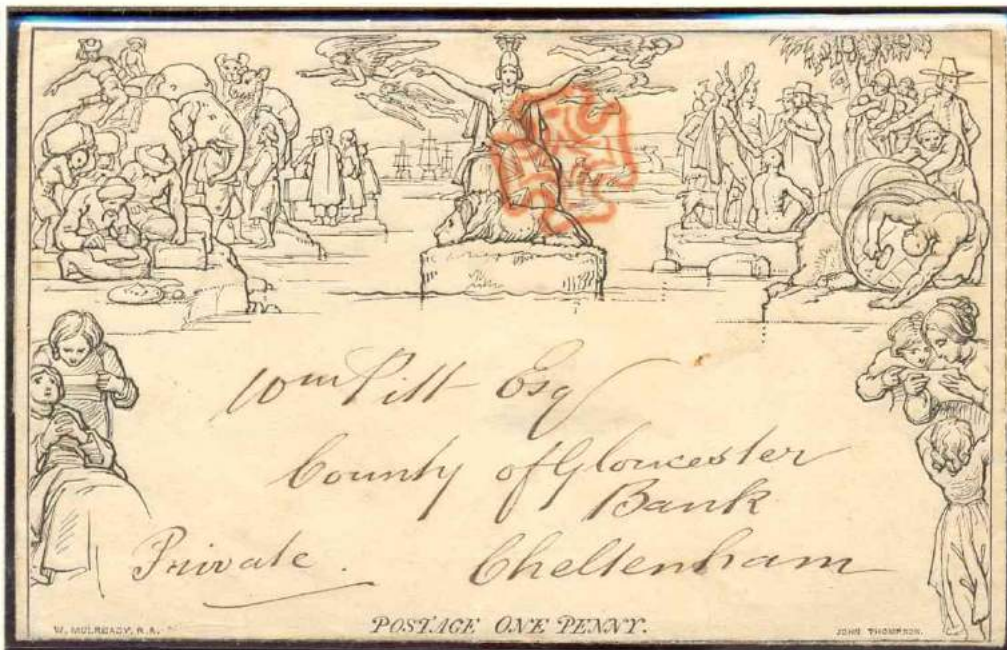 Wm Pitt Esq
County of Gloucester
Bank
Private.
Cheltenham
W. MULREADY, R.A.
POSTAGE ONE PENNY.
JOHN THOMPSON.